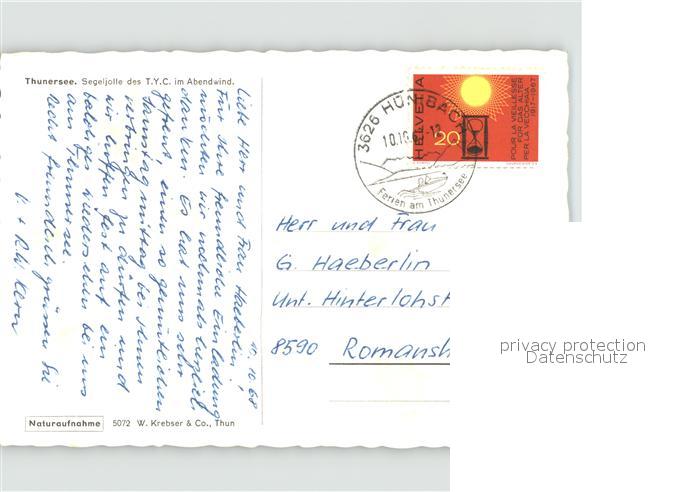 Thunersee. Segeljolle des T.Y.C. im Abendwind.
10.10.68
Liebe Herr und Frau Haeberlin,
Für Ihre freundliche Einladung
möchten wir nochmals herzlich
danken. Es hat uns sehr
gefreut, einen so gemütlichen
Samstagmittag bei Ihnen
verbringen zu dürfen und
wir hoffen fest auf ein
baldiges Wiedersehen bei uns
am Thunersee.
Recht freundlich grüssen Sie
Naturaufnahme 5072 W. Krebser & Co., Thun
3626 HÜNIBACH
Ferien am Thunersee
HELVETIA
20
POUR LA VIEILLESSE
FÜR DAS ALTER
PER LA VECCHIAIA
1917-1967
Herr und Frau
G. Haeberlin
Unt. Hinterlohst
8590 Romansh
privacy protection
Datenschutz